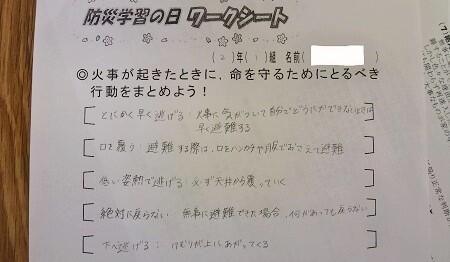 防災学習の日 ワークシート
(2)年(1)組 名前(
◎火事が起きたときに、命を守るためにとるべき
行動をまとめよう！
とにかく早く逃げる：火事に気がついて自分でどうにかできないときは
早く避難する
口を覆う：避難する際は、口をハンカチや服でおさえて避難
低い姿勢で逃げる：必ず天井から覆っていく
絶対に戻らない 無事に避難できた場合、何があっても戻らない
下へ逃げる：けむりが上に、あがってくる